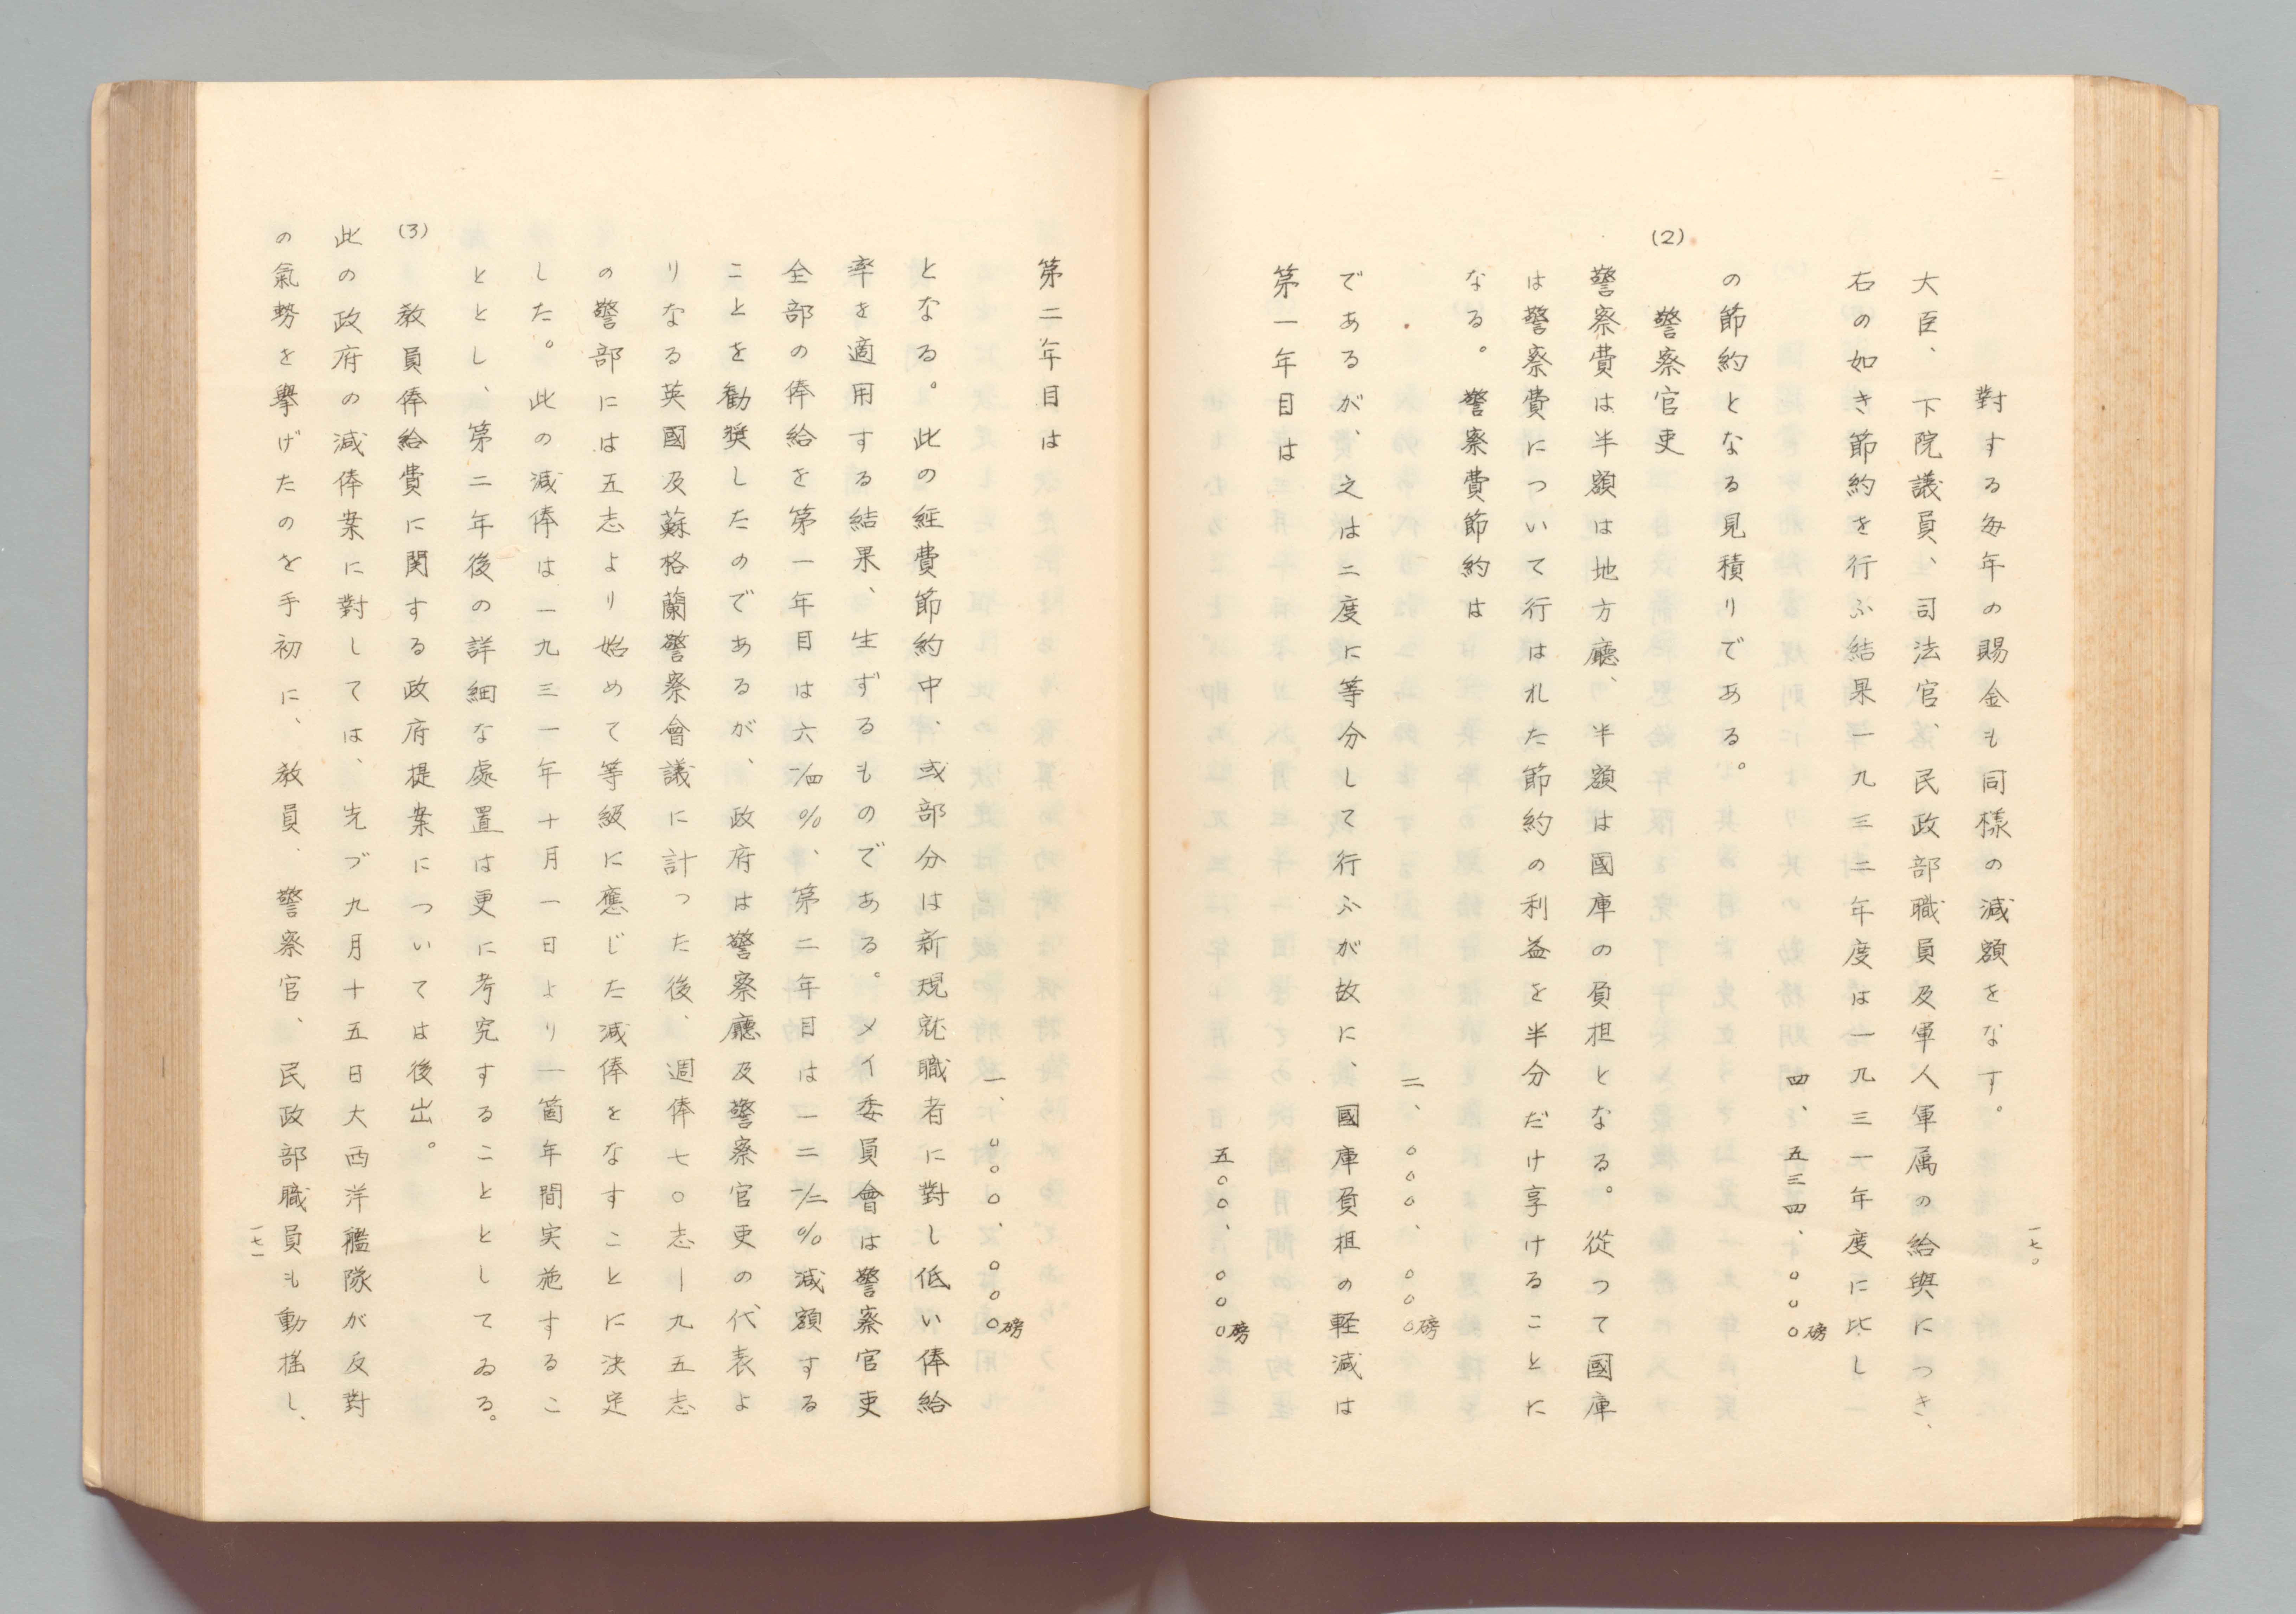 一七〇
對する毎年の賜金も同樣の減額をなす。
大臣、下院議員、司法官、民政部職員及軍人軍属の給與につき、
右の如き節約を行ふ結果一九三二年度は一九三一年度に比し
四、五三四、〇〇〇磅
の節約となる見積りである。
(2) 警察官吏
警察費は半額は地方廳、半額は國庫の負担となる。從つて國庫
は警察費について行はれた節約の利益を半分だけ享けることに
なる。警察費節約は
二、〇〇〇、〇〇〇磅
であるが、之は二度に等分して行ふが故に、國庫負担の軽減は
第一年目は
五〇〇、〇〇〇磅
第二年目は
一、〇〇〇、〇〇〇磅
となる。此の経費節約中、或部分は新規就職者に對し低い俸給
率を適用する結果、生ずるものである。メイ委員會は警察官吏
全部の俸給を第一年目は六一/四%、第二年目は一二一/二%減額する
ことを勧奬したのであるが、政府は警察廳及警察官吏の代表よ
りなる英國及蘇格蘭警察會議に計つた後、週俸七〇志ー九五志
の警部には五志より始めて等級に應じた減俸をなすことに決定
した。此の減俸は一九三一年十月一日より一箇年間実施するこ
ととし、第二年後の詳細な處置は更に考究することとしてゐる。
(3) 教員俸給費に関する政府提案については後出。
此の政府の減俸案に對しては、先づ九月十五日大西洋艦隊が反對
の氣勢を擧げたのを手初に、教員、警察官、民政部職員も動揺し、
一七一